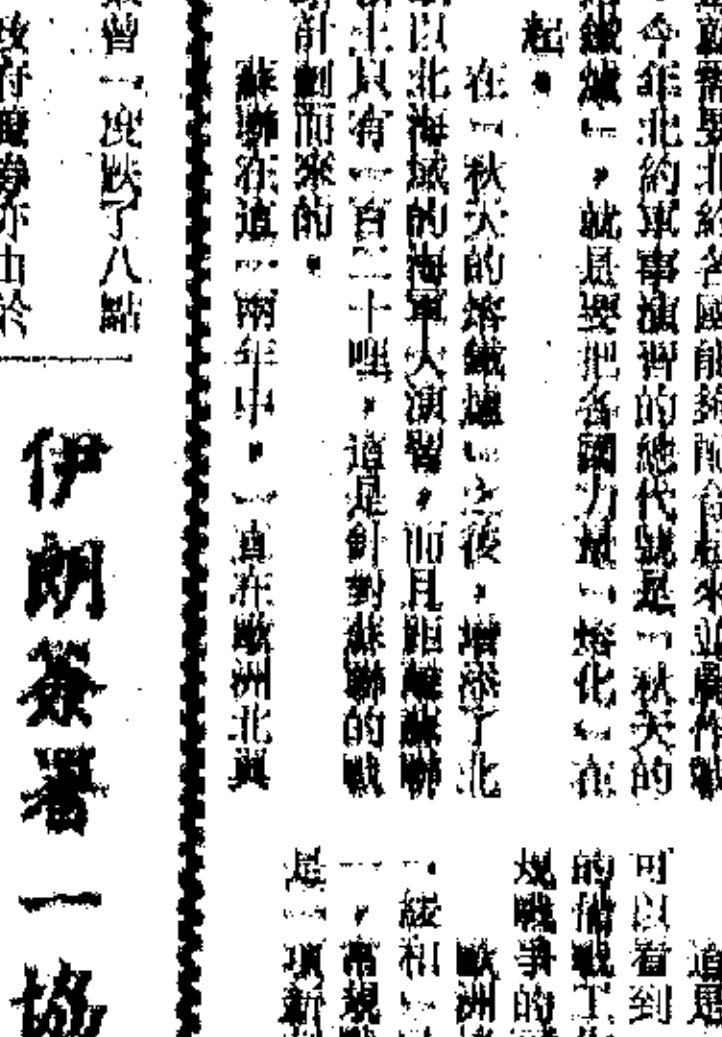 北約各國能夠配合起來並肩作戰
今年北約軍事演習的總代號是「秋天的
鐵爐」,就是要把各國力量「熔化」在
起。
在「秋天的熔鐵爐」之後,增添了北
以北海域的海軍大演習,而且距離蘇聯
只有一百二十哩,這是針對蘇聯的戰
計劃而來的。
蘇聯在這一兩年中,一直在歐洲北與
這是
可以看到
的備戰工
規戰爭的
歐洲
「緩和」
一,常規
是一項新
曾一度跌了八點
亦由於
伊朗簽署一協